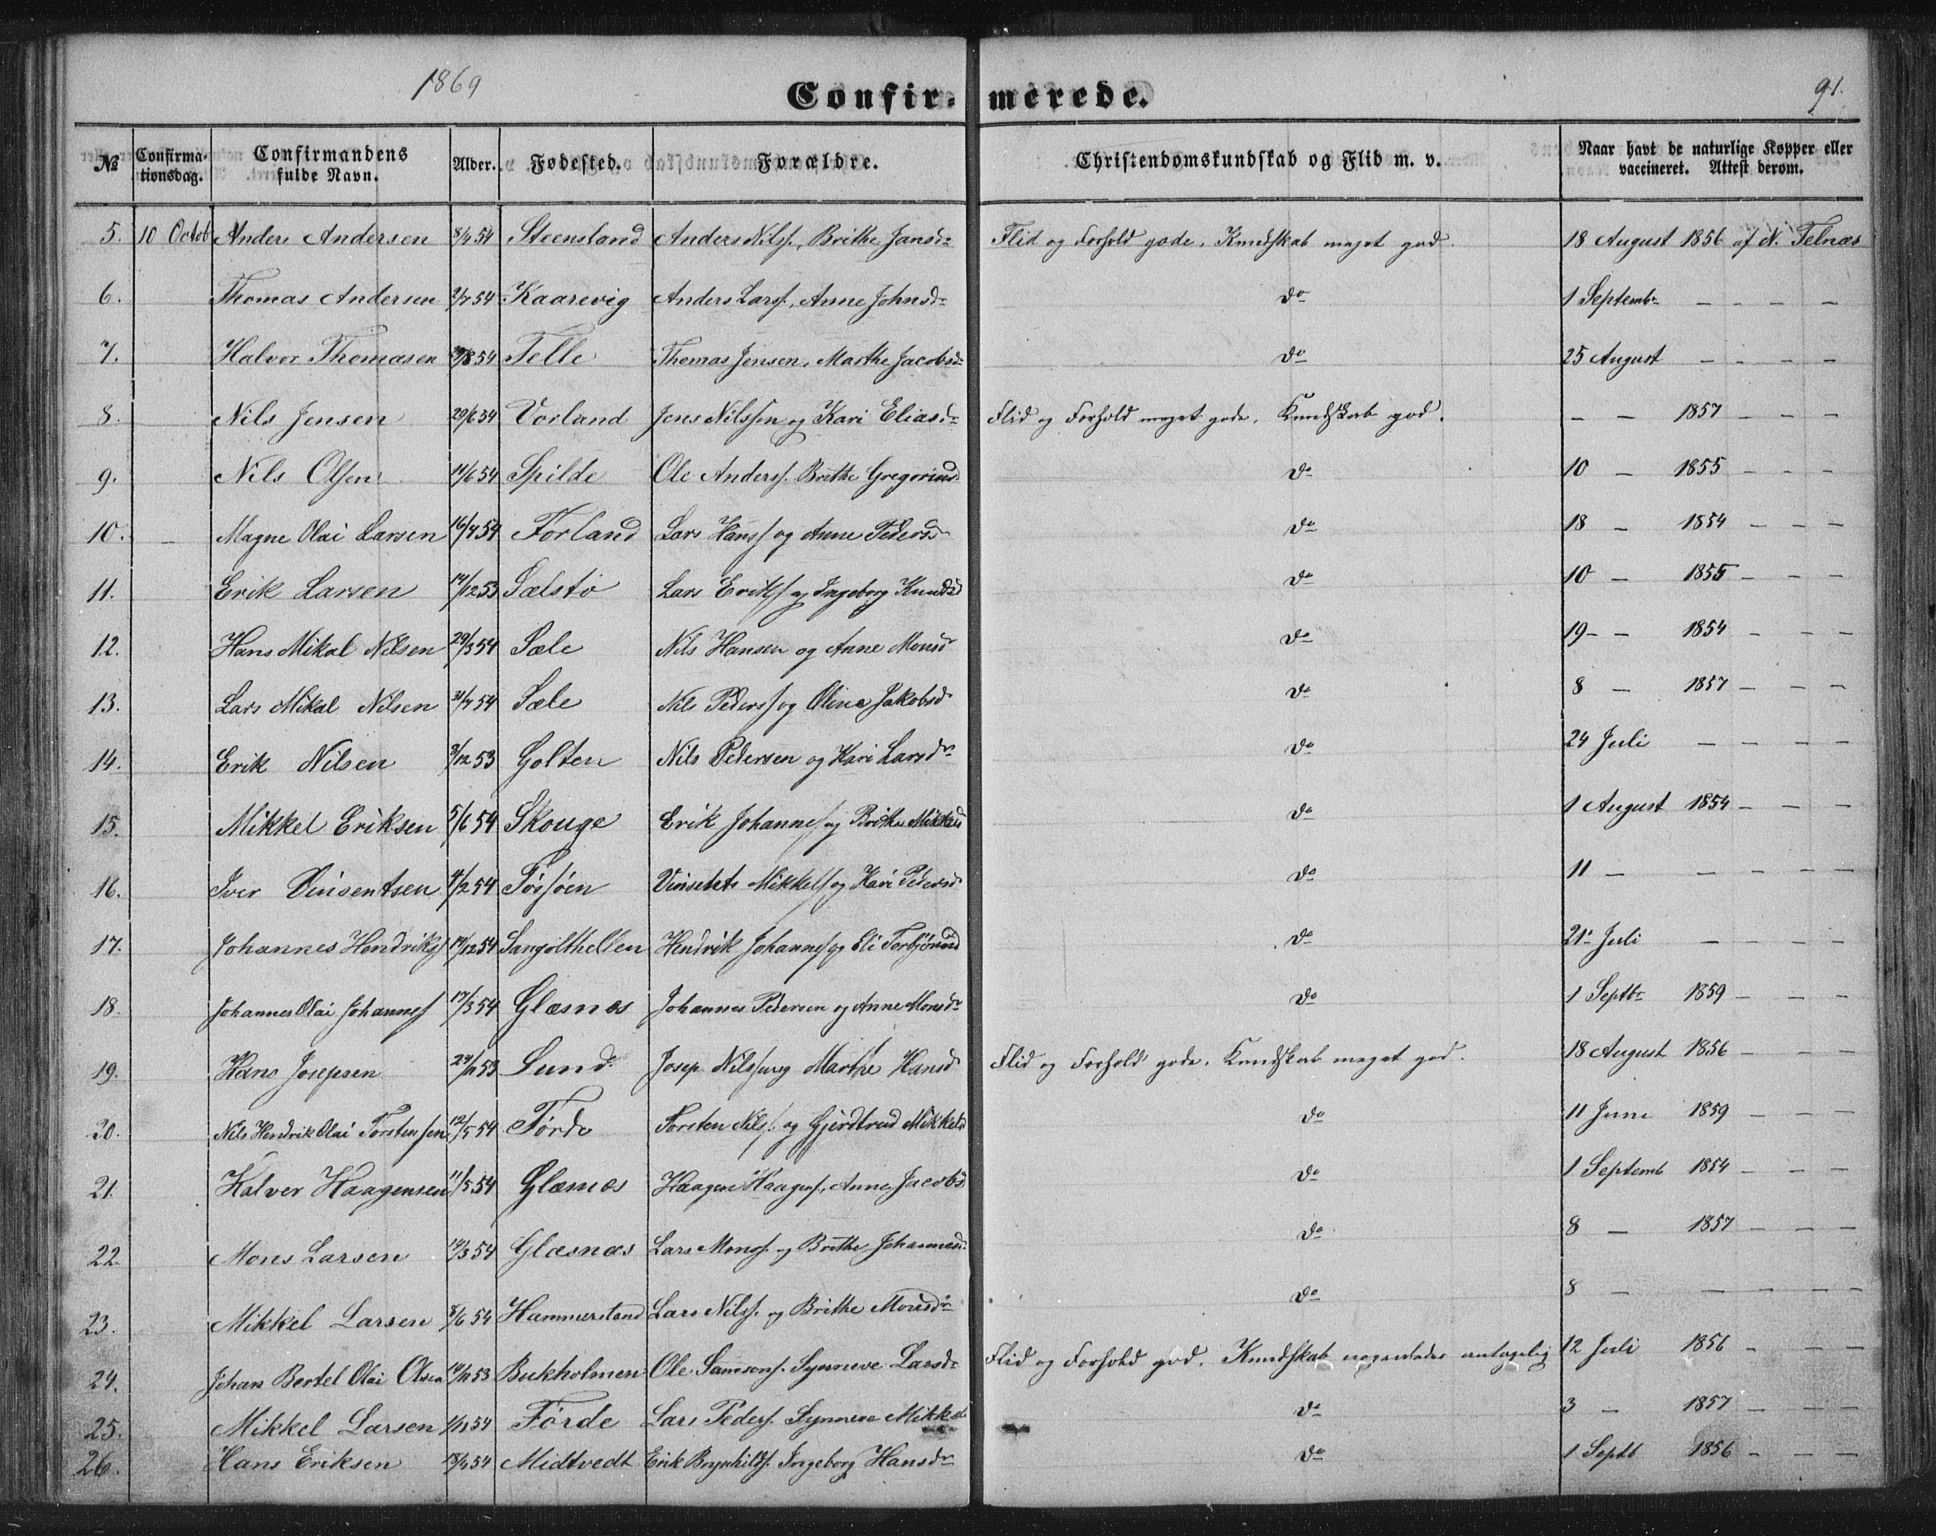 1869 Confirmerede. 91.
№ Confirmationsdag. Confirmandens fulde Navn. Alder. Fødested. Forældre. Christendomskundskab og Flid m. v. Naar havt de naturlige Kopper eller vaccineret. Attest derom.
5. 10 Octob Anders Andersen 8/4 54 Steensland Anders Nilss. Brithe Jansd Flid og Forhold gode. Kundskab meget god. 18 August 1856 af N. Telnæs
6. Thomas Andersen 2/7 54 Kaarevig Anders Larss. Anne Johnsd do 1 Septembr — — — —
7. Halvor Thomasen /8 54 Telle Thomas Jensen, Marthe Jacobsd do 25 August — — — —
8. Nils Jensen 29/6 54 Vorland Jens Nilssen og Kari Eliasd Flid og Forhold meget gode. Kundskab god. — — 1857 — — —
9. Nils Olsen 14/6 54 Spilde Ole Anderss. Brithe Gregoriusd do 10 — 1855 — — —
10. Magne Olai Larsen 16/7 54 Forland Lars Hanss og Anne Pedersd do 18 — 1854 — — —
11. Erik Larsen 14/12 53 Sælstø Lars Erikss og Ingeborg Knudsd do 10 — 1855 — — —
12. Hans Mikal Nilsen 29/3 54 Sæle Nils Hansen og Anne Monsd do 19 — 1854 — — —
13. Lars Mikal Nilsen 31/7 54 Sæle Nils Pederss og Oline Jakobsd do 8 — 1857 — — —
14. Erik Nilsen 3/12 53 Golten Nils Pedersen og Kari Larsd do 24 Juli — — — —
15. Mikkel Eriksen 5/6 54 Skouge Erik Johanness og Brithe Mikkelsd do 1 August 1854 — — —
16. Iver Vinsentsen 4/2 54 Toftøen Vinsents Mikkelss og Kari Pedersd do 11 — — — — —
17. Johannes Hendrikss 14/12 54 Sangolthellen Hendrik Johanness og Eli Torbjørnsd do 21 Juli — — — —
18. Johannes Olai Johanness 17/3 54 Glæsnæs Johannes Pedersen og Anne Monsd do 1 Septbr 1859 — — —
19. Hans Josepsen 24/11 53 Sund Josep Nilssen og Marthe Hansd Flid og Forhold gode. Kundskab meget god. 18 August 1856 — — —
20. Nils Hendrik Olai Torstensen 12/5 54 Førde Torsten Nilss. og Gjerdtrud Mikkelsd do 11 June 1859 — — —
21. Halver Haagensen 11/5 54 Glæsnæs Haagen Haagenss. Anne Jacobsd do 1 Septemb 1854 — — —
22. Mons Larsen 14/3 54 Glæsnæs Lars Monss. og Brithe Johannesd do 8 — 1857 — — —
23. Mikkel Larsen 8/6 54 Hammersland Lars Nilss. og Brithe Monsdr do 8 — — — —
24. Johan Bertel Olai Olsen 14/11 53 Bukholmen Ole Samsons. Synneve Larsd Flid og Forhold god. Kundskab nogenledes antagelig 12 Juli 1856 — — —
25. Mikkel Larsen 1/11 54 Førde Lars Peders. Synneva Mikkelsd do 3 — 1857 — — —
26. Hans Eriksen 18/4 54 Midtvedt Erik Brynhilds. Ingeborg Hansdr do 1 Septb 1856 — — —